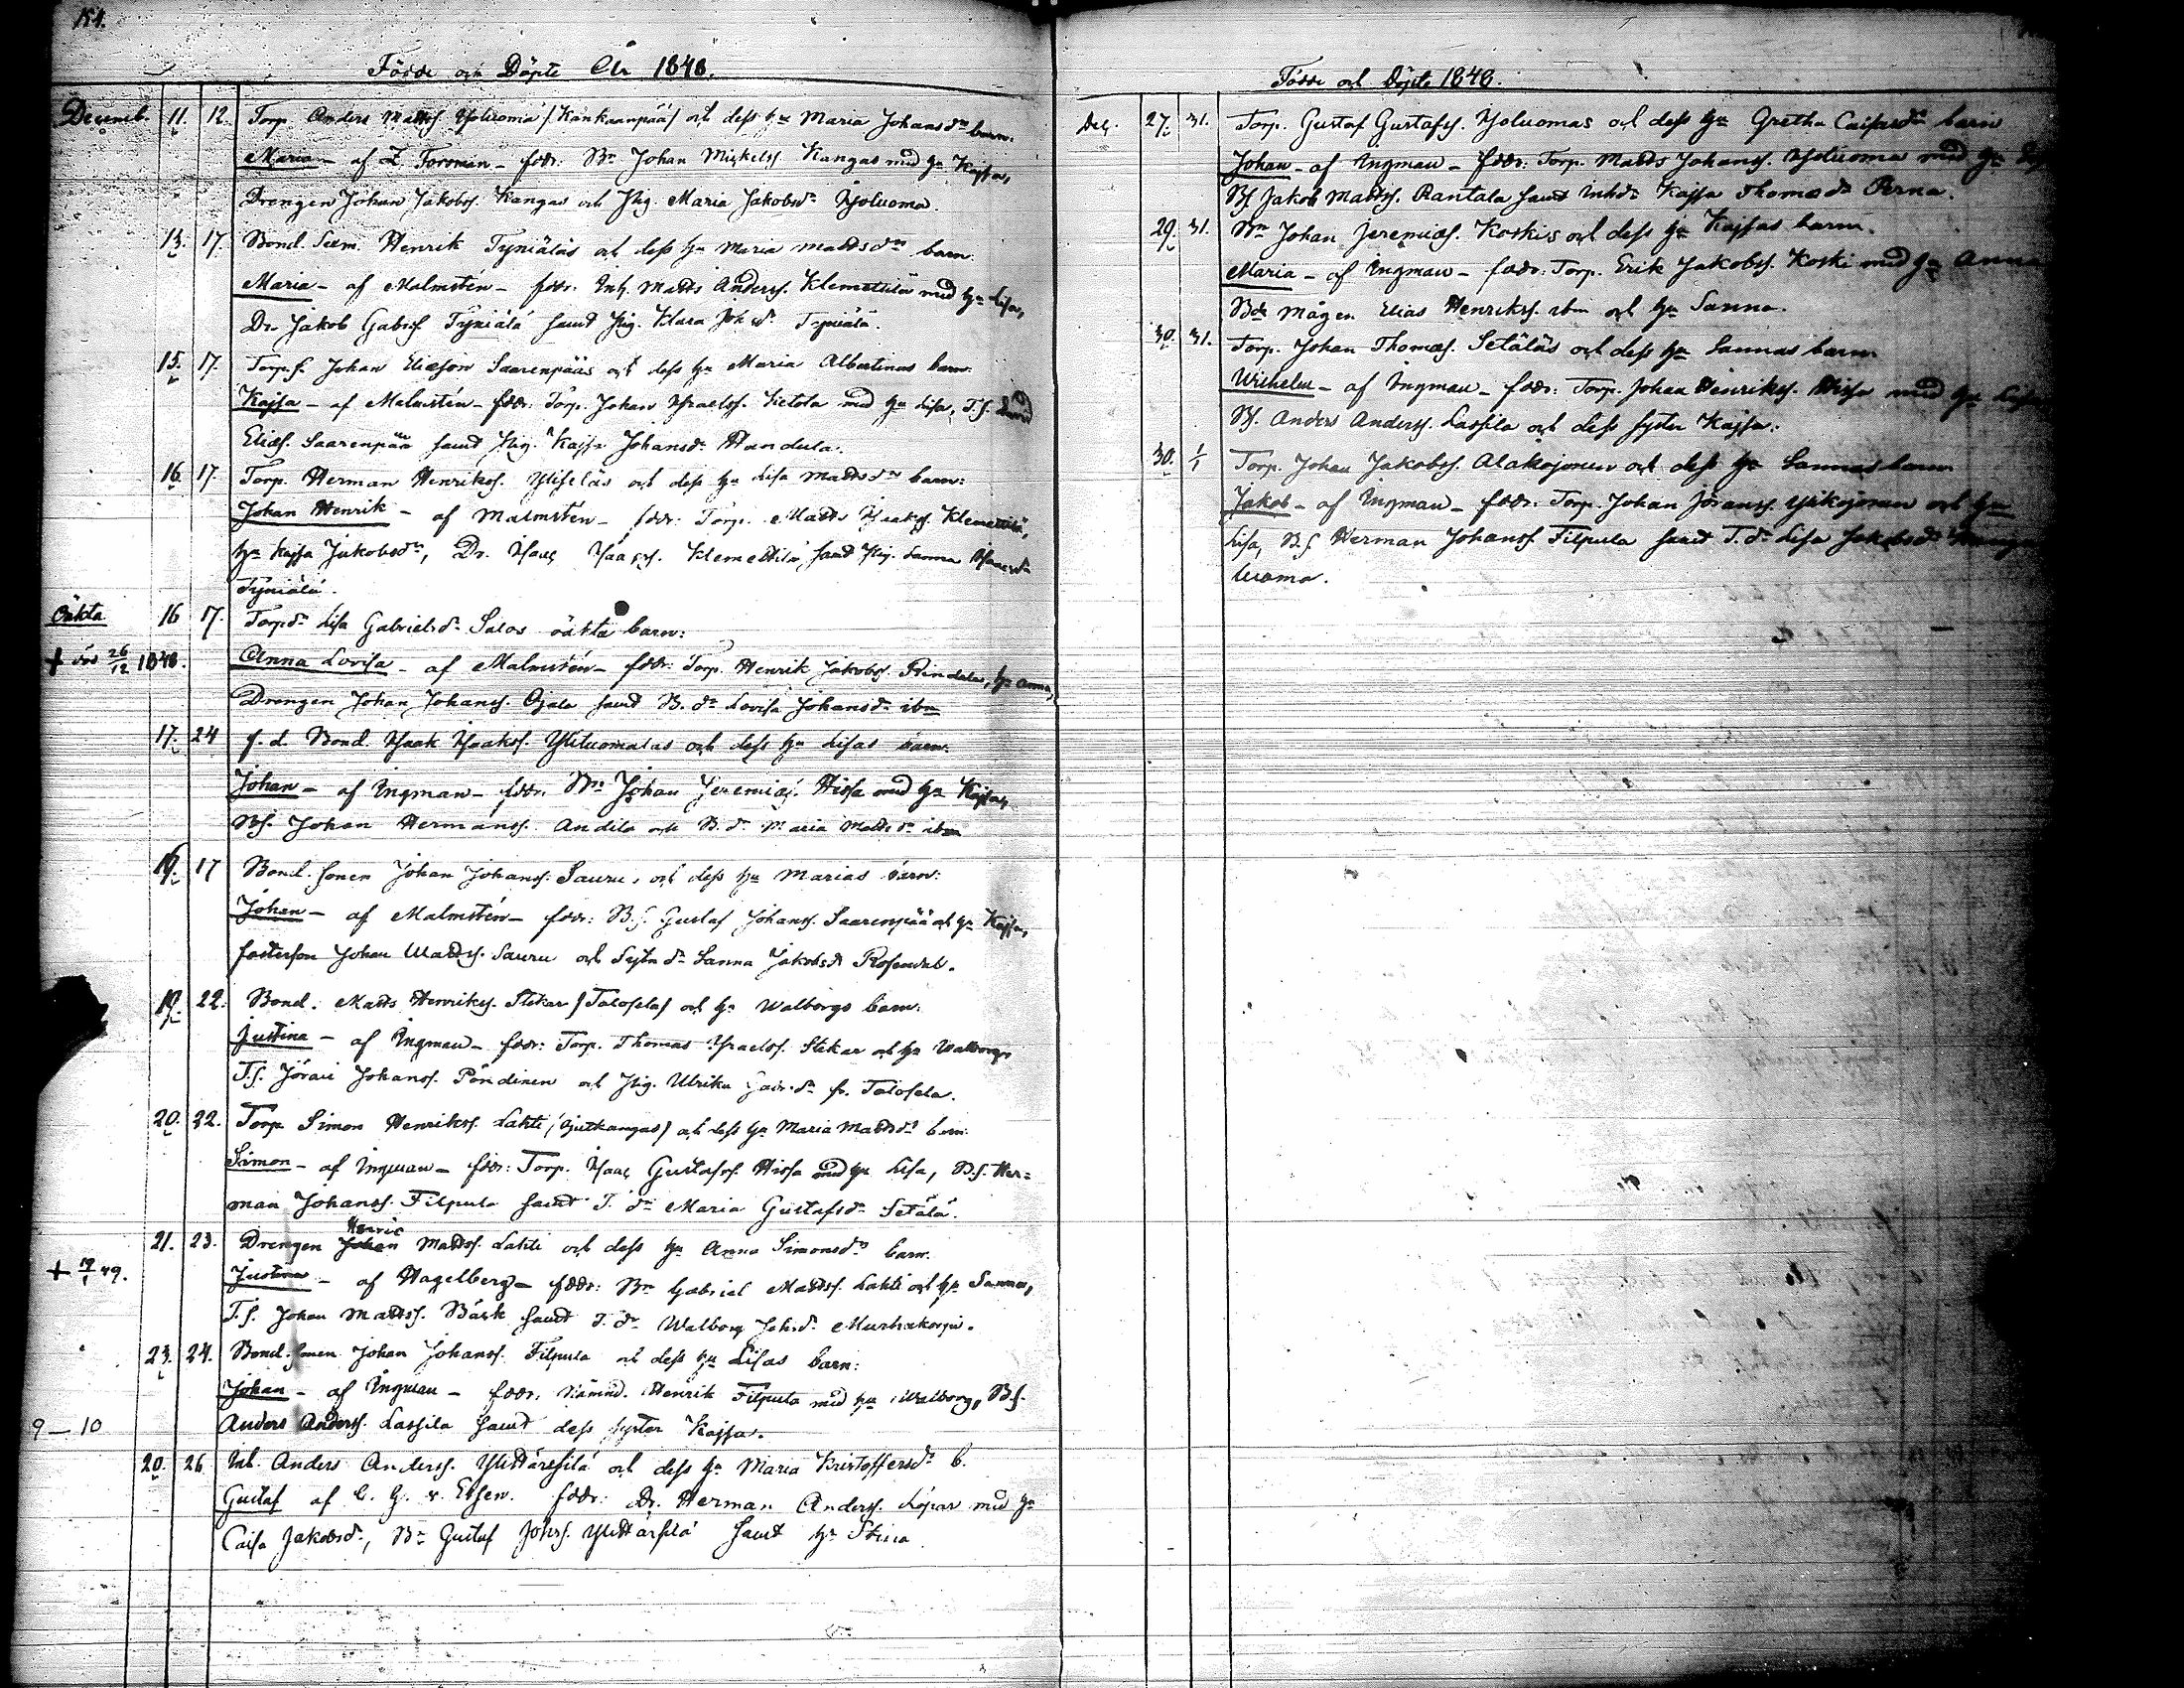 Födde och Döpte År 1848.
Decemb. 11. 12. Torp. Anders Matts. Yoluoma /Kankaanpää/ och dess hu Maria Johansdrs barn.
Maria - af Z. Forsman - fddr: Bn Johan Mickelss. Kangas med hu Kajsa,
Drengen Johan Jakobss. Kangas och Pig. Maria Jakobsdr Yoluoma.
13. 17. Bond. Henrik Tyniäläs och dess hu Maria Mattsdrs barn.
Maria - af Malmstén - fddr: Inh. Matts Anderss. Klemettilä med hu Lisa,
Dr. Jakob Gabrss. Tyniälä samt Pig. Klara Johsdr Tyniälä.
15. 17. Torp.s. Johan Eliæson Saarenpääs och dess hu Maria Albertinas barn:
Kajsa - af Malmstén - fddr: Torp. Johan Israelss. Lietola med hu Lisa, T.s.
Eliæs. Saarenpää samt Pig. Kajsa Johansdr Handula.
16. 17. Torp. Herman Henrikss. och dess hu Lisa Mattsdrs barn:
Johan Henrik - af Malmstén - fddr: Torp. Matts Isakss. Klemettilä,
hu Kajsa Jakobsdr, Dr. Isaac Isacss. Klemettilä, samt Pig. Sanna Isaacsdr
Tyniälä.
Oäkta 16 17. Torp.dr Lisa Gabrielsdr Salos oäkta barn:
+ död 26/12 1848. Anna Lovisa - af Malmstén - fddr: Torp. Henrik Jakobss. Rindala, hu Anna,
Drengen Johan Johanss. Ojala samt B.dr Lovisa Johansdr ibm
17. 24 f.d. Bond. Isaak Isaakss. Yliluomalas och dess hu Lisas barn.
Johan - af Ingman - fddr. Bn Johan Jeremiæs. Hissa med hu Kajsa,
Bs. Johan Hermanss. Andila och B.dr Maria Mattsdr ibm
19. 17 Bond. sonen Johan Johanss. Sauru, och dess hu Marias barn:
Johan - af Malmstén - fddr: B.s. Gustaf Johanss. Saarenpää och hu Kajsa,
fosterson Johan Mattss. Sauru och Sytn.dr Sanna Jakobsdr Rosendal.
19. 22. Bond. Matts Henrikss. Stekar /Talosela/ och hu Walborgs barn:
Justina - af Ingman - fddr: Torp. Thomas Israelss. Stekar och hu Walborg,
T.s. Jöran Johanss. Pöndinen och Pig. Ulrika fr. Talosela.
20. 22. Torp. Simon Henrikss. Lahti /Ojutkangas/ och dess hu Maria Mattsdrs barn:
Simon - af Ingman - fddr: Torp. Isaac Gustafss. Hissa med hu Lisa, B.s. Her=
man Johanss. Filpula samt T.dr Maria Gustafsdr Setälä.
Henric
21. 23. Drengen Johan Mattss. Lahti och dess hu Anna Simonsdrs barn.
+ 19/1 49. Justina - af Hagelberg - fddr: Bn Gabriel Mattss. Lahti och hu Sanna,
T.s. Johan Mattss. Bärk samt T.dr Walborg Johsdr
23. 24. Bond. sonen Johan Johanss. Filpula och dess hu Lisas barn:
Johan - af Ingman - fddr: Nämnd. Henrik Filpula med hu Walborg, B.s.
9 - 10 Anders Anderss. Lassila samt dess syster Kajsa.
20. 26 Inh. Anders Anderss. Ylittärsilä och dess hu Maria Kristoffersdrs b.
Gustaf af C. G. v. Essen. fddr: Dr. Herman Anderss. Löpar med hu
Caisa Jakobsdr, Bn Gustaf Johss. Ylittärsilä samt hu Stina.
Födde och Döpte 1848.
Dec. 27. 31. Torp. Gustaf Gustafss. Yoluomas och dess hu Gretha Caisasdrs barn
Johan - af Ingman - fddr: Torp. Matts Johanss. Yoluoma med hu
Bs Jakob Mattss. Rantala samt Inhdr Kajsa Thomædr Perna.
29. 31. Bn Johan Jeremiæs. Koskis och dess hu Kajsas barn.
Maria - af Ingman - fddr: Torp. Erik Jakobss. Koski med hu Anna
Bde mågen Elias Henrikss. ibm och hu Sanna.
30. 31. Torp. Johan Thomæs. Setäläs och dess hu Sannas barn
Wilhelm - af Ingman - fddr: Torp. Johan Henrikss. Hissa med hu
Bs. Anders Anderss. Lassila och dess syster Kajsa.
30. 1/1 Torp. Johan Jakobss. Alakojonen och dess hu Sannas barn
Jakob - af Ingman - fddr: Torp. Johan Jöranss. Ylikojonen och hu
Lisa, B.s Herman Johanss. Filpula samt T.dr Lisa Jakobsdr
luoma.